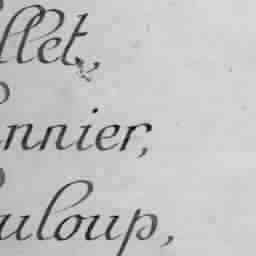 llet,
nnier,
uloup,